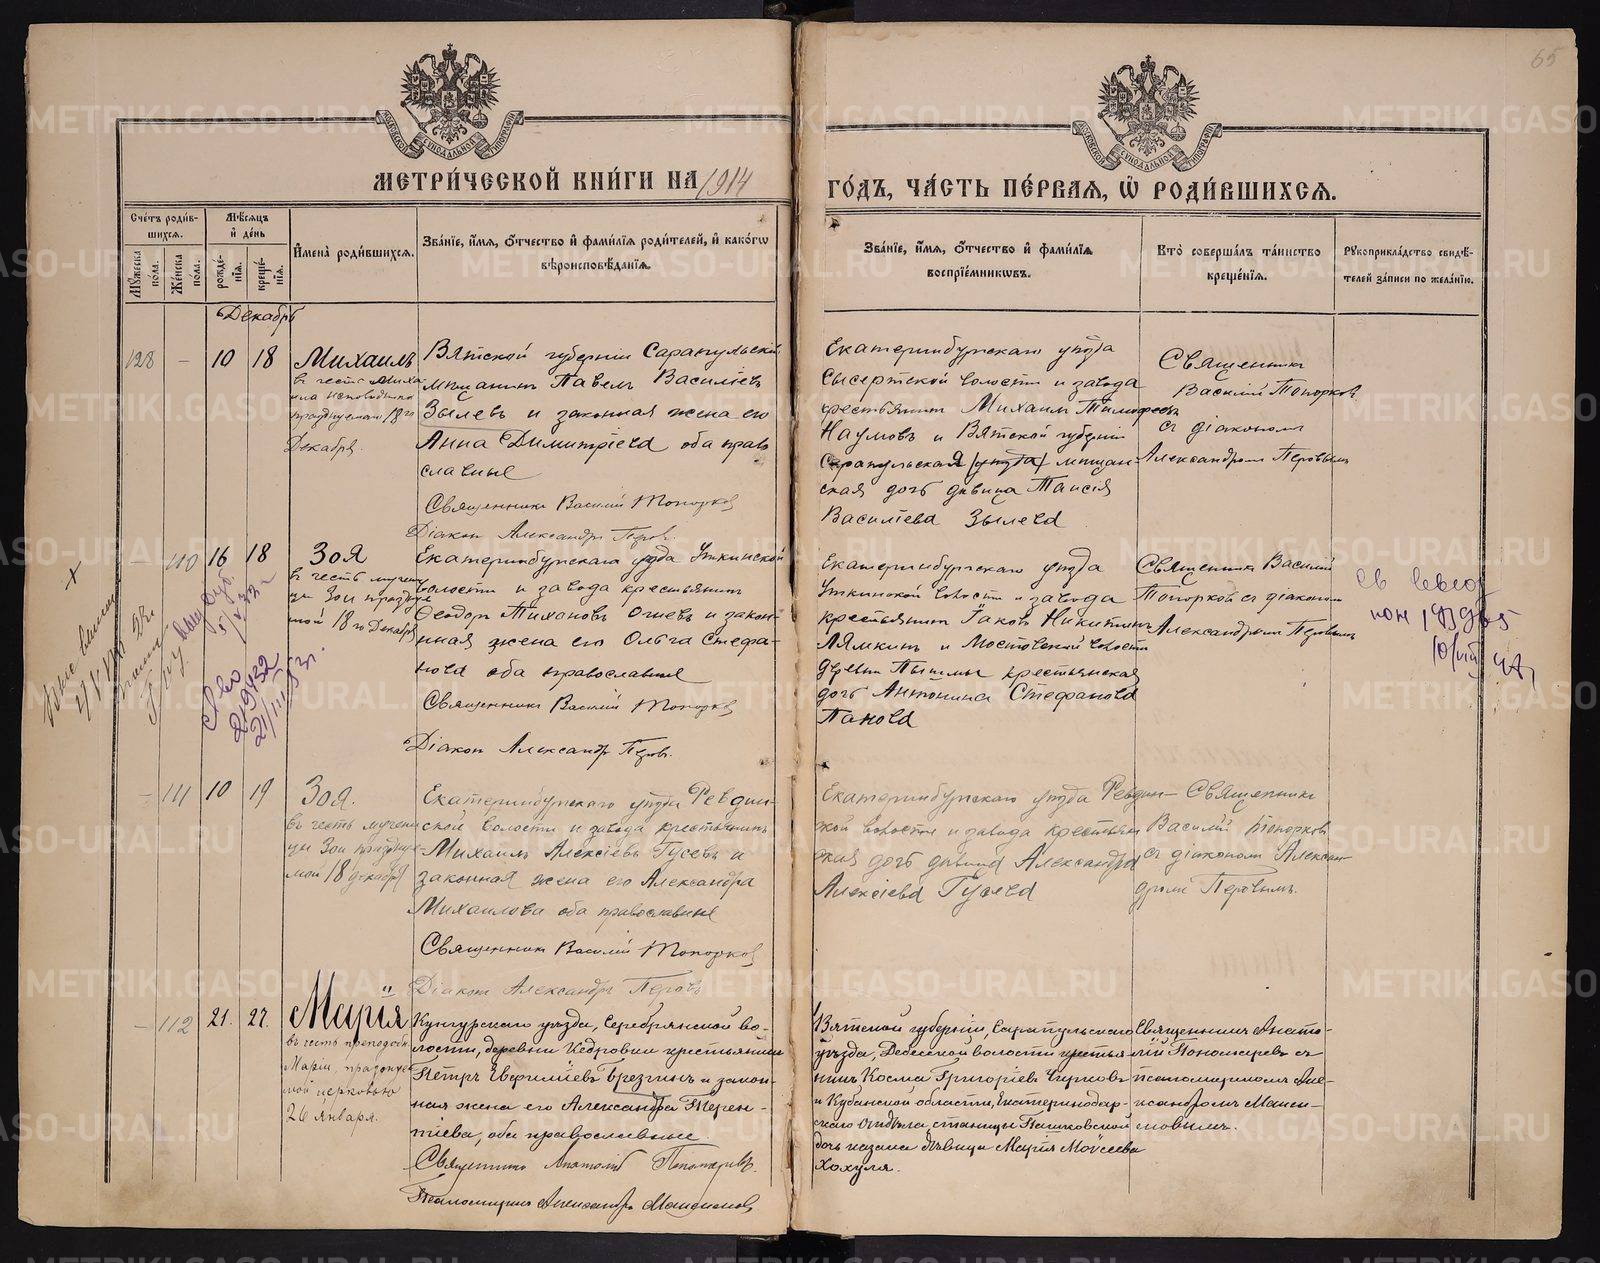 65
МЕТРИ́ЧЕСКОЙ КНИ́ГИ НА 1914
ГО́ДЪ, ЧА́СТЬ ПЕ́РВАЯ, Ѡ҆ РОДИ́ВШИХСЯ.
Сче́тъ роди́в-
шихся.
Мѣ́сяцъ
и҆ де́нь
И҆мена̀ роди́вшихся.
Зва́нїе, и҆́мя, ѻ҆́тчество и҆ фами́лїя роди́телей, и҆ како́гѡ
вѣроисповѣ́данїя.
Зва́нїе, и҆́мя, ѻ҆́тчество и҆ фами́лїя
воспрїе́мниковъ.
Кто̀ соверша́лъ та́инство
креще́нїя.
Рꙋкоприкла́дство свидѣ́-
телей за́писи по жела́нїю.
Мꙋ́жеска
по́ла.
Же́нска
по́ла.
рожде́-
нїя.
креще́-
нїя.
Декабрь
128 – 10 18
Михаилъ
въ честь Миха
ила исповѣдника
празднуемаго 18го
Декабря.
Вятской губерніи Сарапульскій
мѣщанинъ Павелъ Василіевъ
Зылевъ и законная жена его
Анна Димитріева оба право
славные
Священникъ Василій Топорковъ
Діаконъ Александръ Перовъ.
Екатеринбургскаго уѣзда
Сысертской волости и завода
крестьянинъ Михаилъ Тимофеевъ
Наумовъ и Вятской губерніи
Сарапульская (уѣзда) мѣщан-
ская дочь дѣвица Таисія
Василіева Зылева
Священникъ
Василій Топорковъ
съ діакономъ
Александромъ Перовымъ
– 110 16 18
Зоя
въ честь мучени
цы Зои праздну
мой 18го Декабря
Екатеринбургскаго уѣзда Уткинской
волости и завода крестьянинъ
Феодоръ Тихоновъ Огневъ и закон-
ная жена его Ольга Стефа-
нова оба православные
Священникъ Василій Топорковъ
Діаконъ Александръ Перовъ.
Екатеринбургскаго уѣзда
Уткинской волости и завода
крестьянинъ Іаковъ Никитинъ
Лямкинъ и Мостовской волости
дѣревни Пышмы крестьянская
дочь Антонина Стефанова
Панова
Священникъ Василій
Топорковъ съ діакономъ
Александромъ Перовымъ
219432
– 111 10 19
Зоя.
въ честь мучени
цы Зои праздну-
мой 18 декабря
Екатеринбургскаго уѣзда Ревдин-
ской волости и завода крестьянинъ
Михаилъ Алексіевъ Гусевъ и
законная жена его Александра
Михаилова оба православные
Священникъ Василій Топорковъ
Діаконъ Александръ Перовъ
Екатеринбургскаго уѣзда Ревдин-
ской волости и завода крестьян
ская дочь дѣвица Александра
Алексіева Гусева
Священникъ
Василій Топорковъ
съ діакономъ Алексан-
дромъ Перовымъ.
– 112 21. 27.
Марія
въ честь преподобн.
Маріи, празднуе
мой церковью
26 января.
Кунгурскаго уѣзда, Серебрянской во-
лости, деревни Кедровки крестьянинъ
Петръ Евфиміевъ Брезгинъ и закон-
ная жена его Александра Терен-
тіева, оба православные
Священникъ Анатолій Пономаревъ.
Псаломщикъ Александръ Максимовъ
Вятской губерніи, Сарапульскаго
уѣзда, Дебесской волости крестья
нинъ Косма Григоріевъ Чирковъ
и Кубанской области, Екатеринодар-
скаго отдѣла, станицы Пашковской
дочь казака дѣвица Марія Моѵсеева
Хохуля.
Священникъ Анато-
лій Пономаревъ съ
псаломщикомъ Але-
ксандромъ Макси-
мовымъ.
METRIKI.GASO-URAL.RU